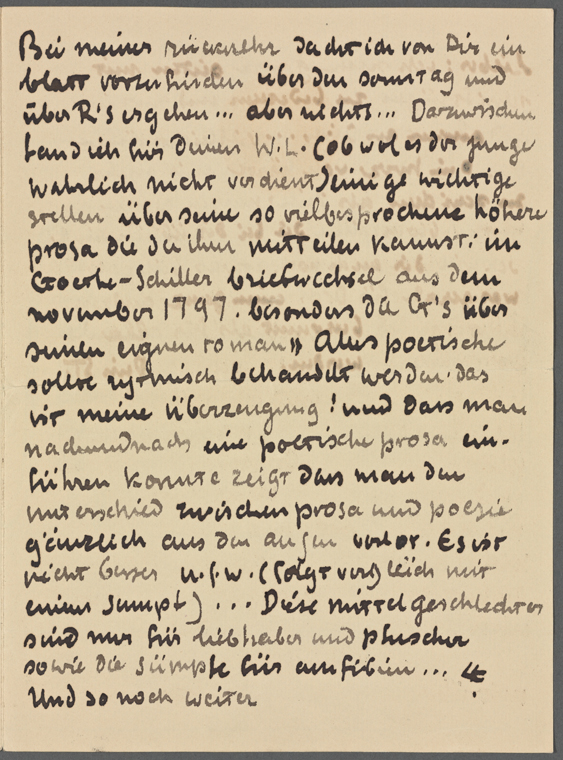 Bei meiner rückkehr dacht ich von Dir ein
blatt vorzufinden über den sonntag und
über R's ergehen... aber nichts... Dazwischen
fand ich für Deinen W.L. (obwol es der junge
wahrlich nicht verdient) einige wichtige
stellen über seine so vielbesprochene höhere
prosa die du ihm mitteilen kannst: im
Goethe-Schiller briefwechsel aus dem
november 1797. besonders da G's über
seinen eignen roman „ Alles poetische
sollte rytmisch behandelt werden. das
ist meine Überzeugung! und dass man
nachundnach eine poetische prosa ein-
führen konnte zeigt dass man den
unterschied zwischen prosa und poesie
gänzlich aus den augen verlor. Es ist
nicht besser u.s.w. (folgt vergleich mit
einem sumpf) ... Diese mittelgeschlechter
sind nur für liebhaber und pfuscher
sowie die sümpfe für amfibien...
Und so noch weiter